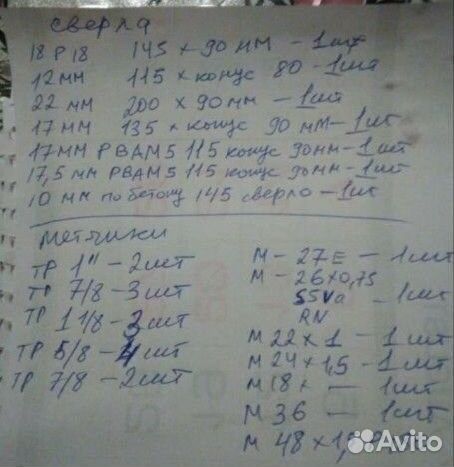 сверла
18 Р 18 145 х 90 мм - 1 шт
12 мм 115 х конус 80 - 1 шт
22 мм 200 х 90 мм - 1 шт
17 мм 135 х конус 90 мм - 1 шт
17 мм РВАМ5 115 конус 90 мм - 1 шт
17,5 мм РВАМ5 115 конус 90 мм - 1 шт
10 мм по бетону 145 сверло - 1 шт
метчики
ТР 1" - 2 шт
ТР 7/8 - 3 шт
ТР 1 1/8 - 3 шт
ТР 5/8 - 4 шт
ТР 7/8 - 2 шт
М - 27Е - 1 шт
М - 26х0,75
SSVa - 1 шт
RN
М 22 х 1 - 1 шт
М 24 х 1,5 - 1 шт
М 18 х - 1 шт
М 36 - 1 шт
М 48 х 1,5
Avito